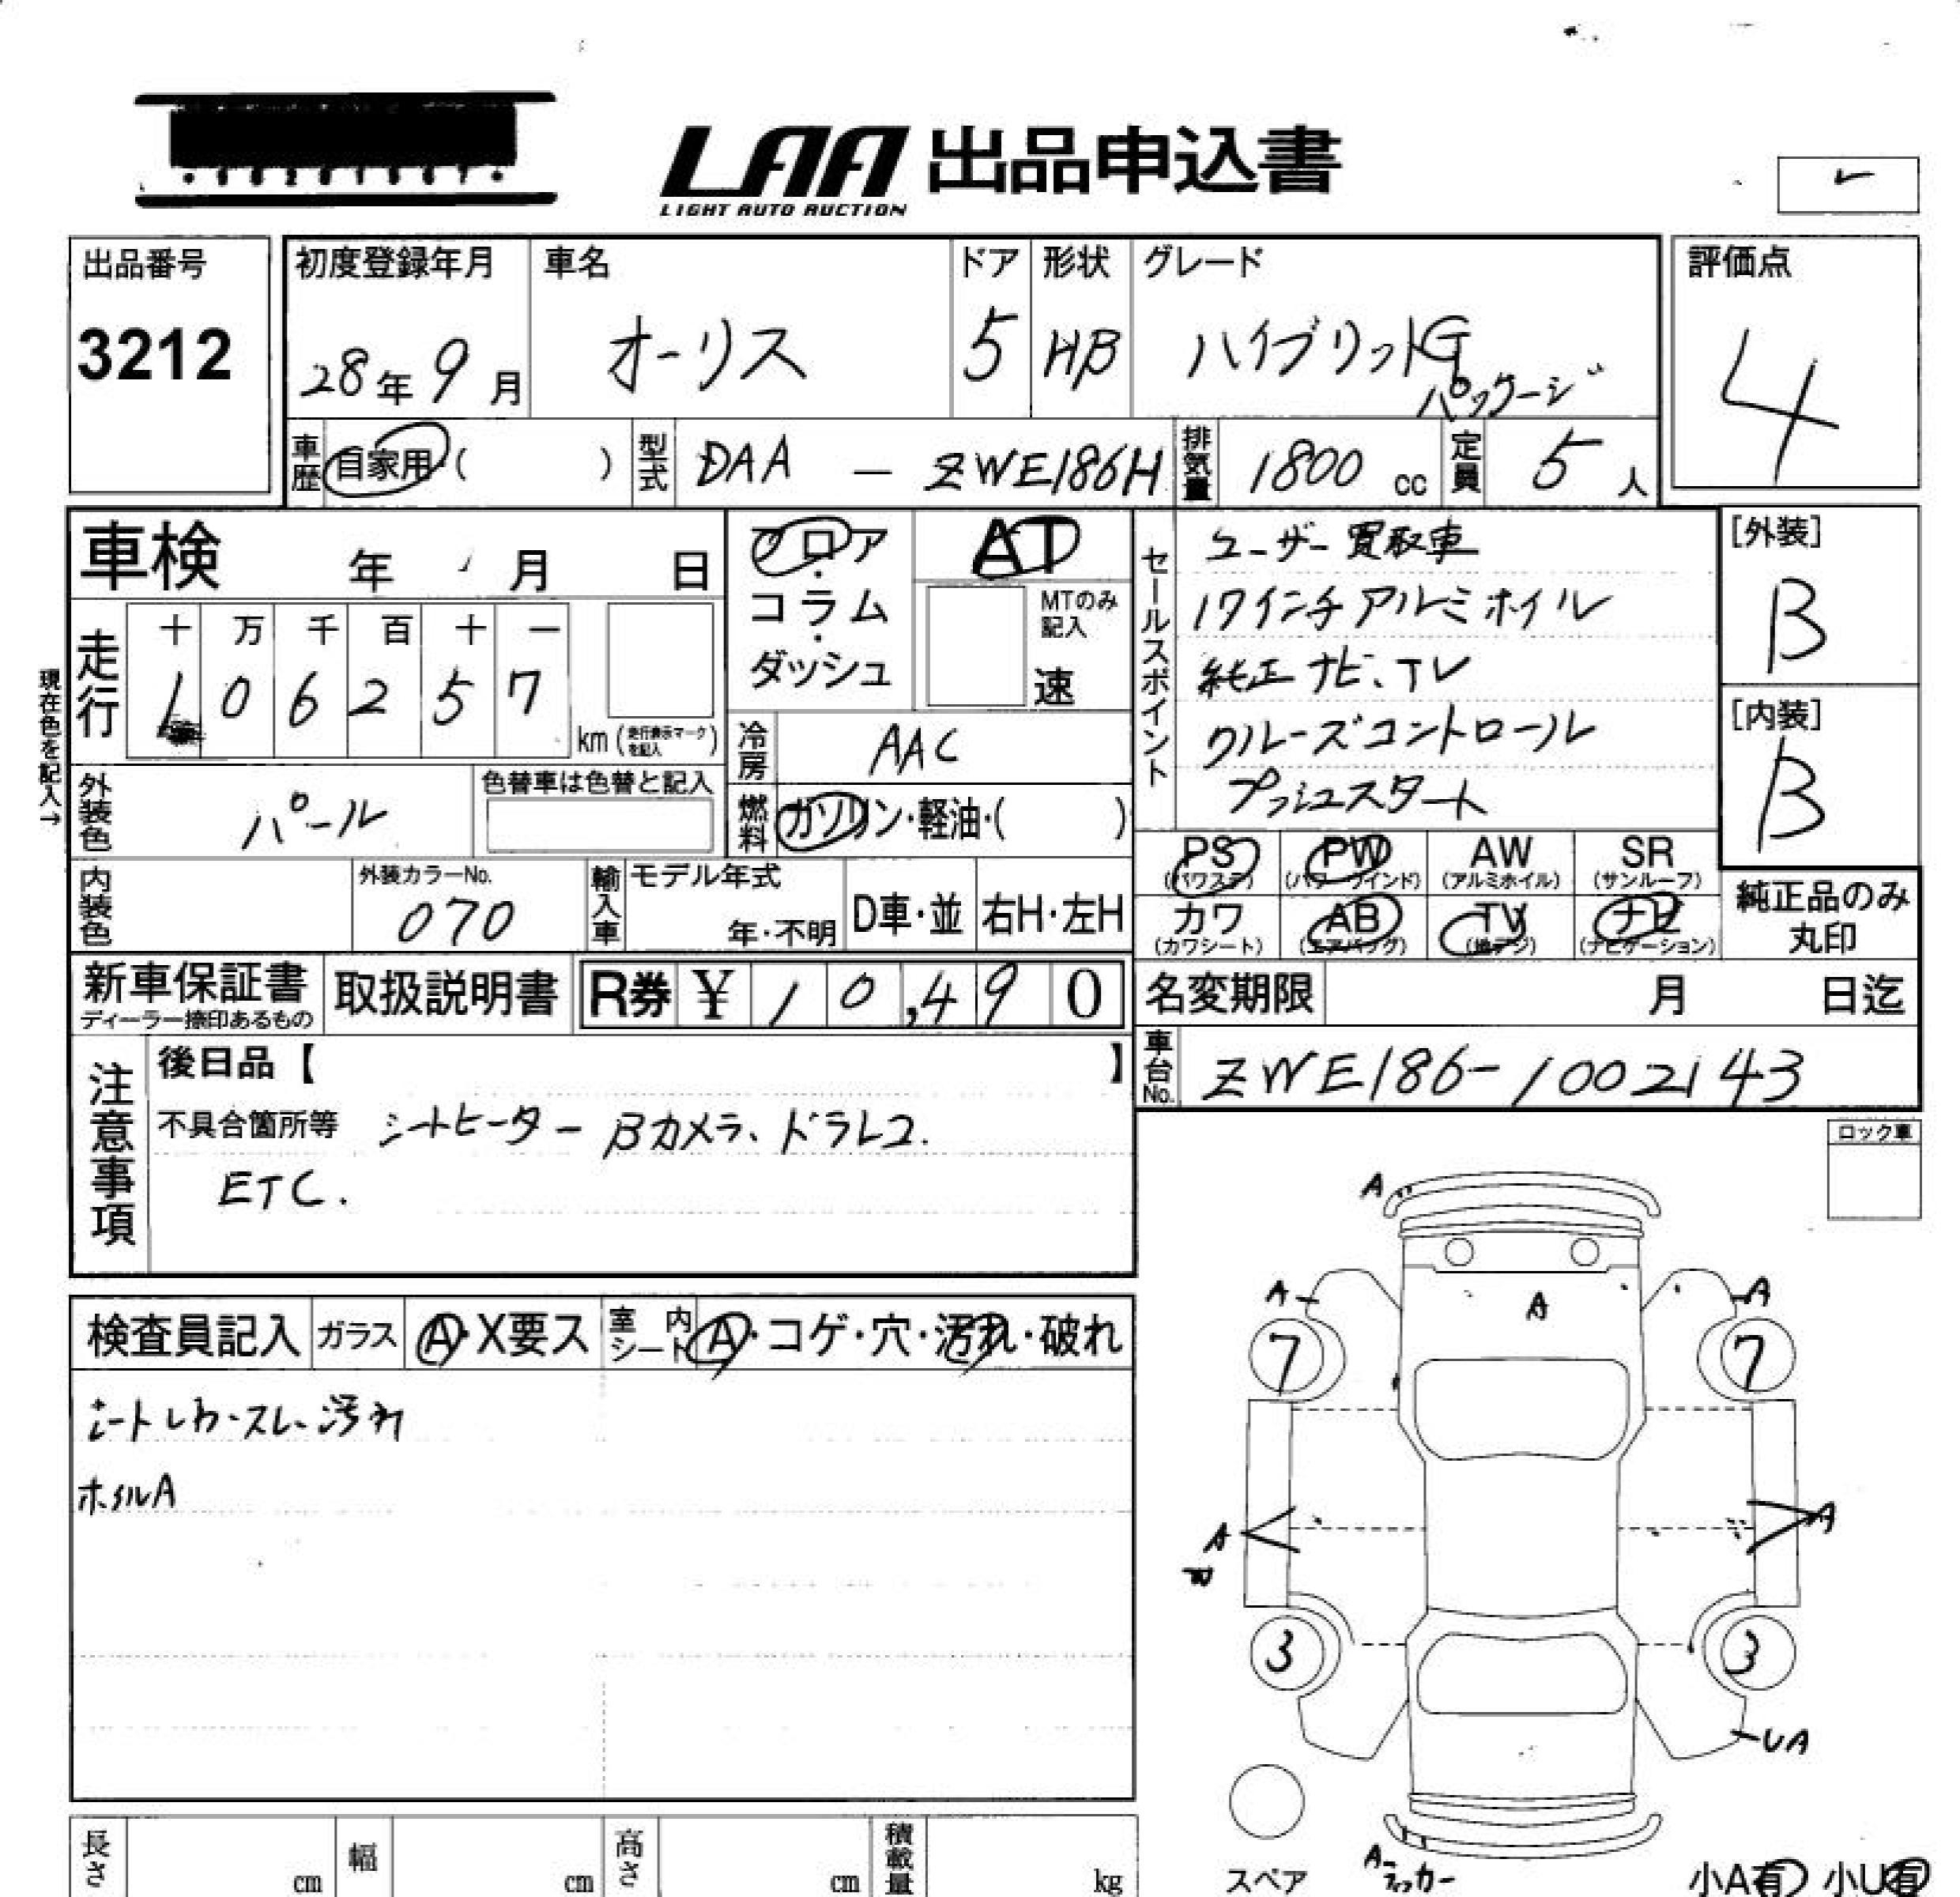 LAA 出品申込書
LIGHT AUTO AUCTION
出品番号
3212
初度登録年月
28年9月
車名
オーリス
ドア
5
形状
HB
グレード
ハイブリットG
パッケージ
評価点
4
車歴 自家用・( )
型式 DAA - ZWE186H
排気量 1800 cc
定員 5人
車検 年 月 日
フロア・コラム・ダッシュ
AT
MTのみ記入
速
走行
十 万 千 百 十 一
1 0 6 2 5 7
km (走行表示マークを記入)
現在色を記入→
外装色 パール
色替車は色替と記入
冷房 AAC
燃料 ガソリン・軽油・( )
内装色
外装カラーNo.
070
輸入車
モデル年式
年・不明
D車・並
右H・左H
セールスポイント
ユーザー買取車
17インチアルミホイル
純正ナビ、TV
クルーズコントロール
プッシュスタート
[外装]
B
[内装]
B
PS (パワステ)
PW (パワーウインド)
AW (アルミホイル)
SR (サンルーフ)
カワ (カワシート)
AB (エアバッグ)
TV (地デジ)
ナビ (ナビゲーション)
純正品のみ
丸印
新車保証書
ディーラー捺印あるもの
取扱説明書
R券 ¥ 10,490
名変期限 月 日迄
車台No. ZWE186-1002143
注意事項
後日品【 】
不具合箇所等 シートヒーター Bカメラ、ドラレコ.
ETC.
ロック車
検査員記入
ガラス A・X要ス
室内シート A・コゲ・穴・汚れ・破れ
シートしわ・スレ・汚れ
ホイルA
A
A
A
A
7
7
A
A
3
3
UA
A
スペア
小A有 小U有
長さ cm
幅 cm
高さ cm
積載量 kg